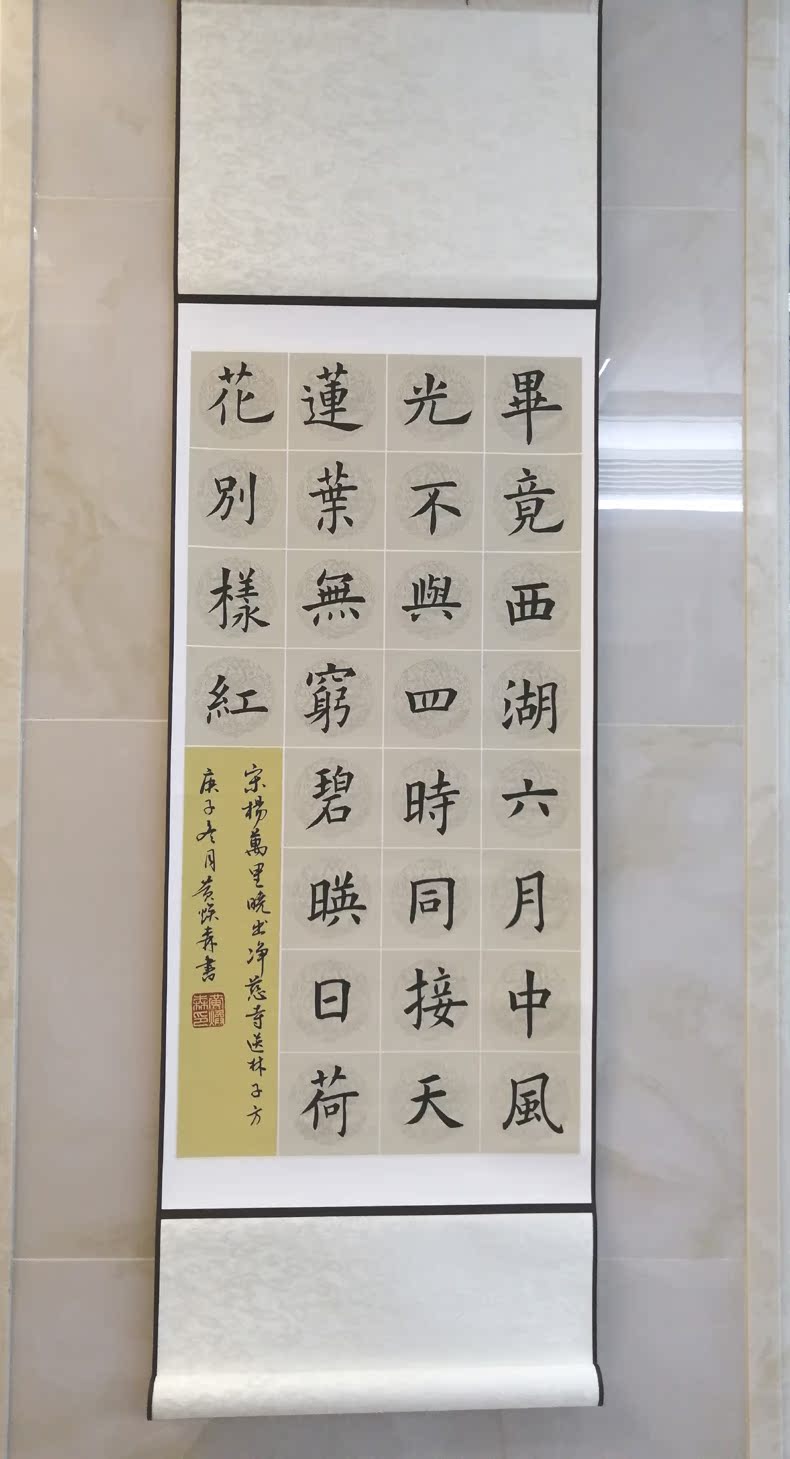 畢竟西湖六月中風
光不與四時同接天
蓮葉無窮碧暎日荷
花別樣紅
宋楊萬里曉出淨慈寺送林子方
庚子冬月黃燦森書